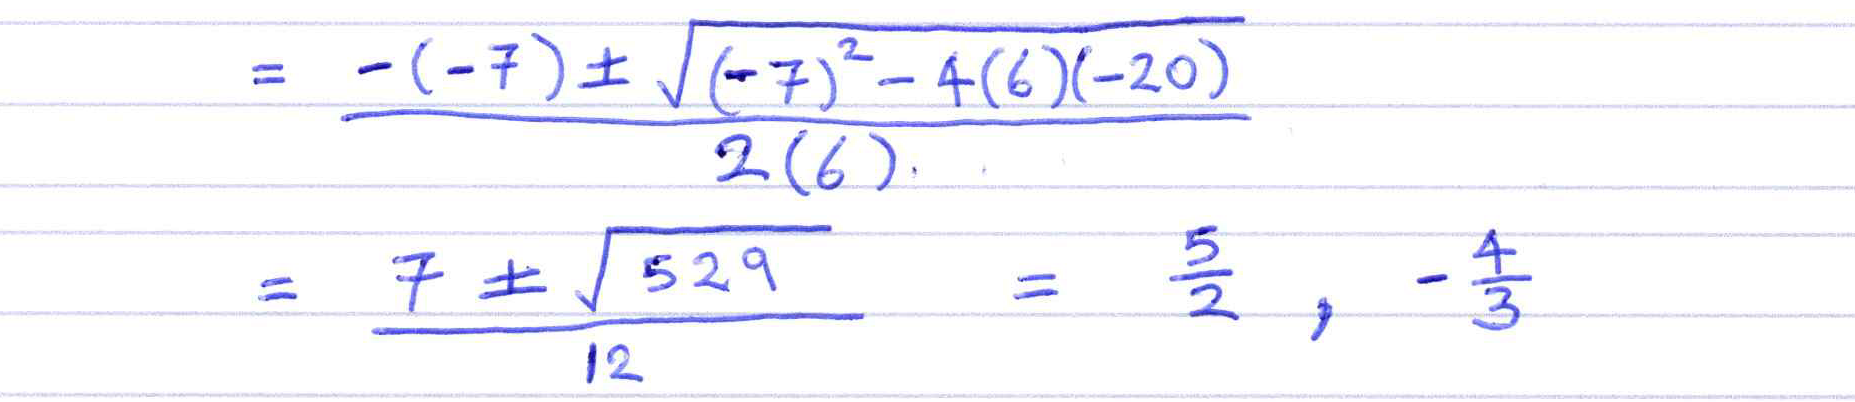 = (-(-7) ± √((-7)² - 4(6)(-20))) / (2(6)).
= (7 ± √529) / 12 = 5/2 , -4/3